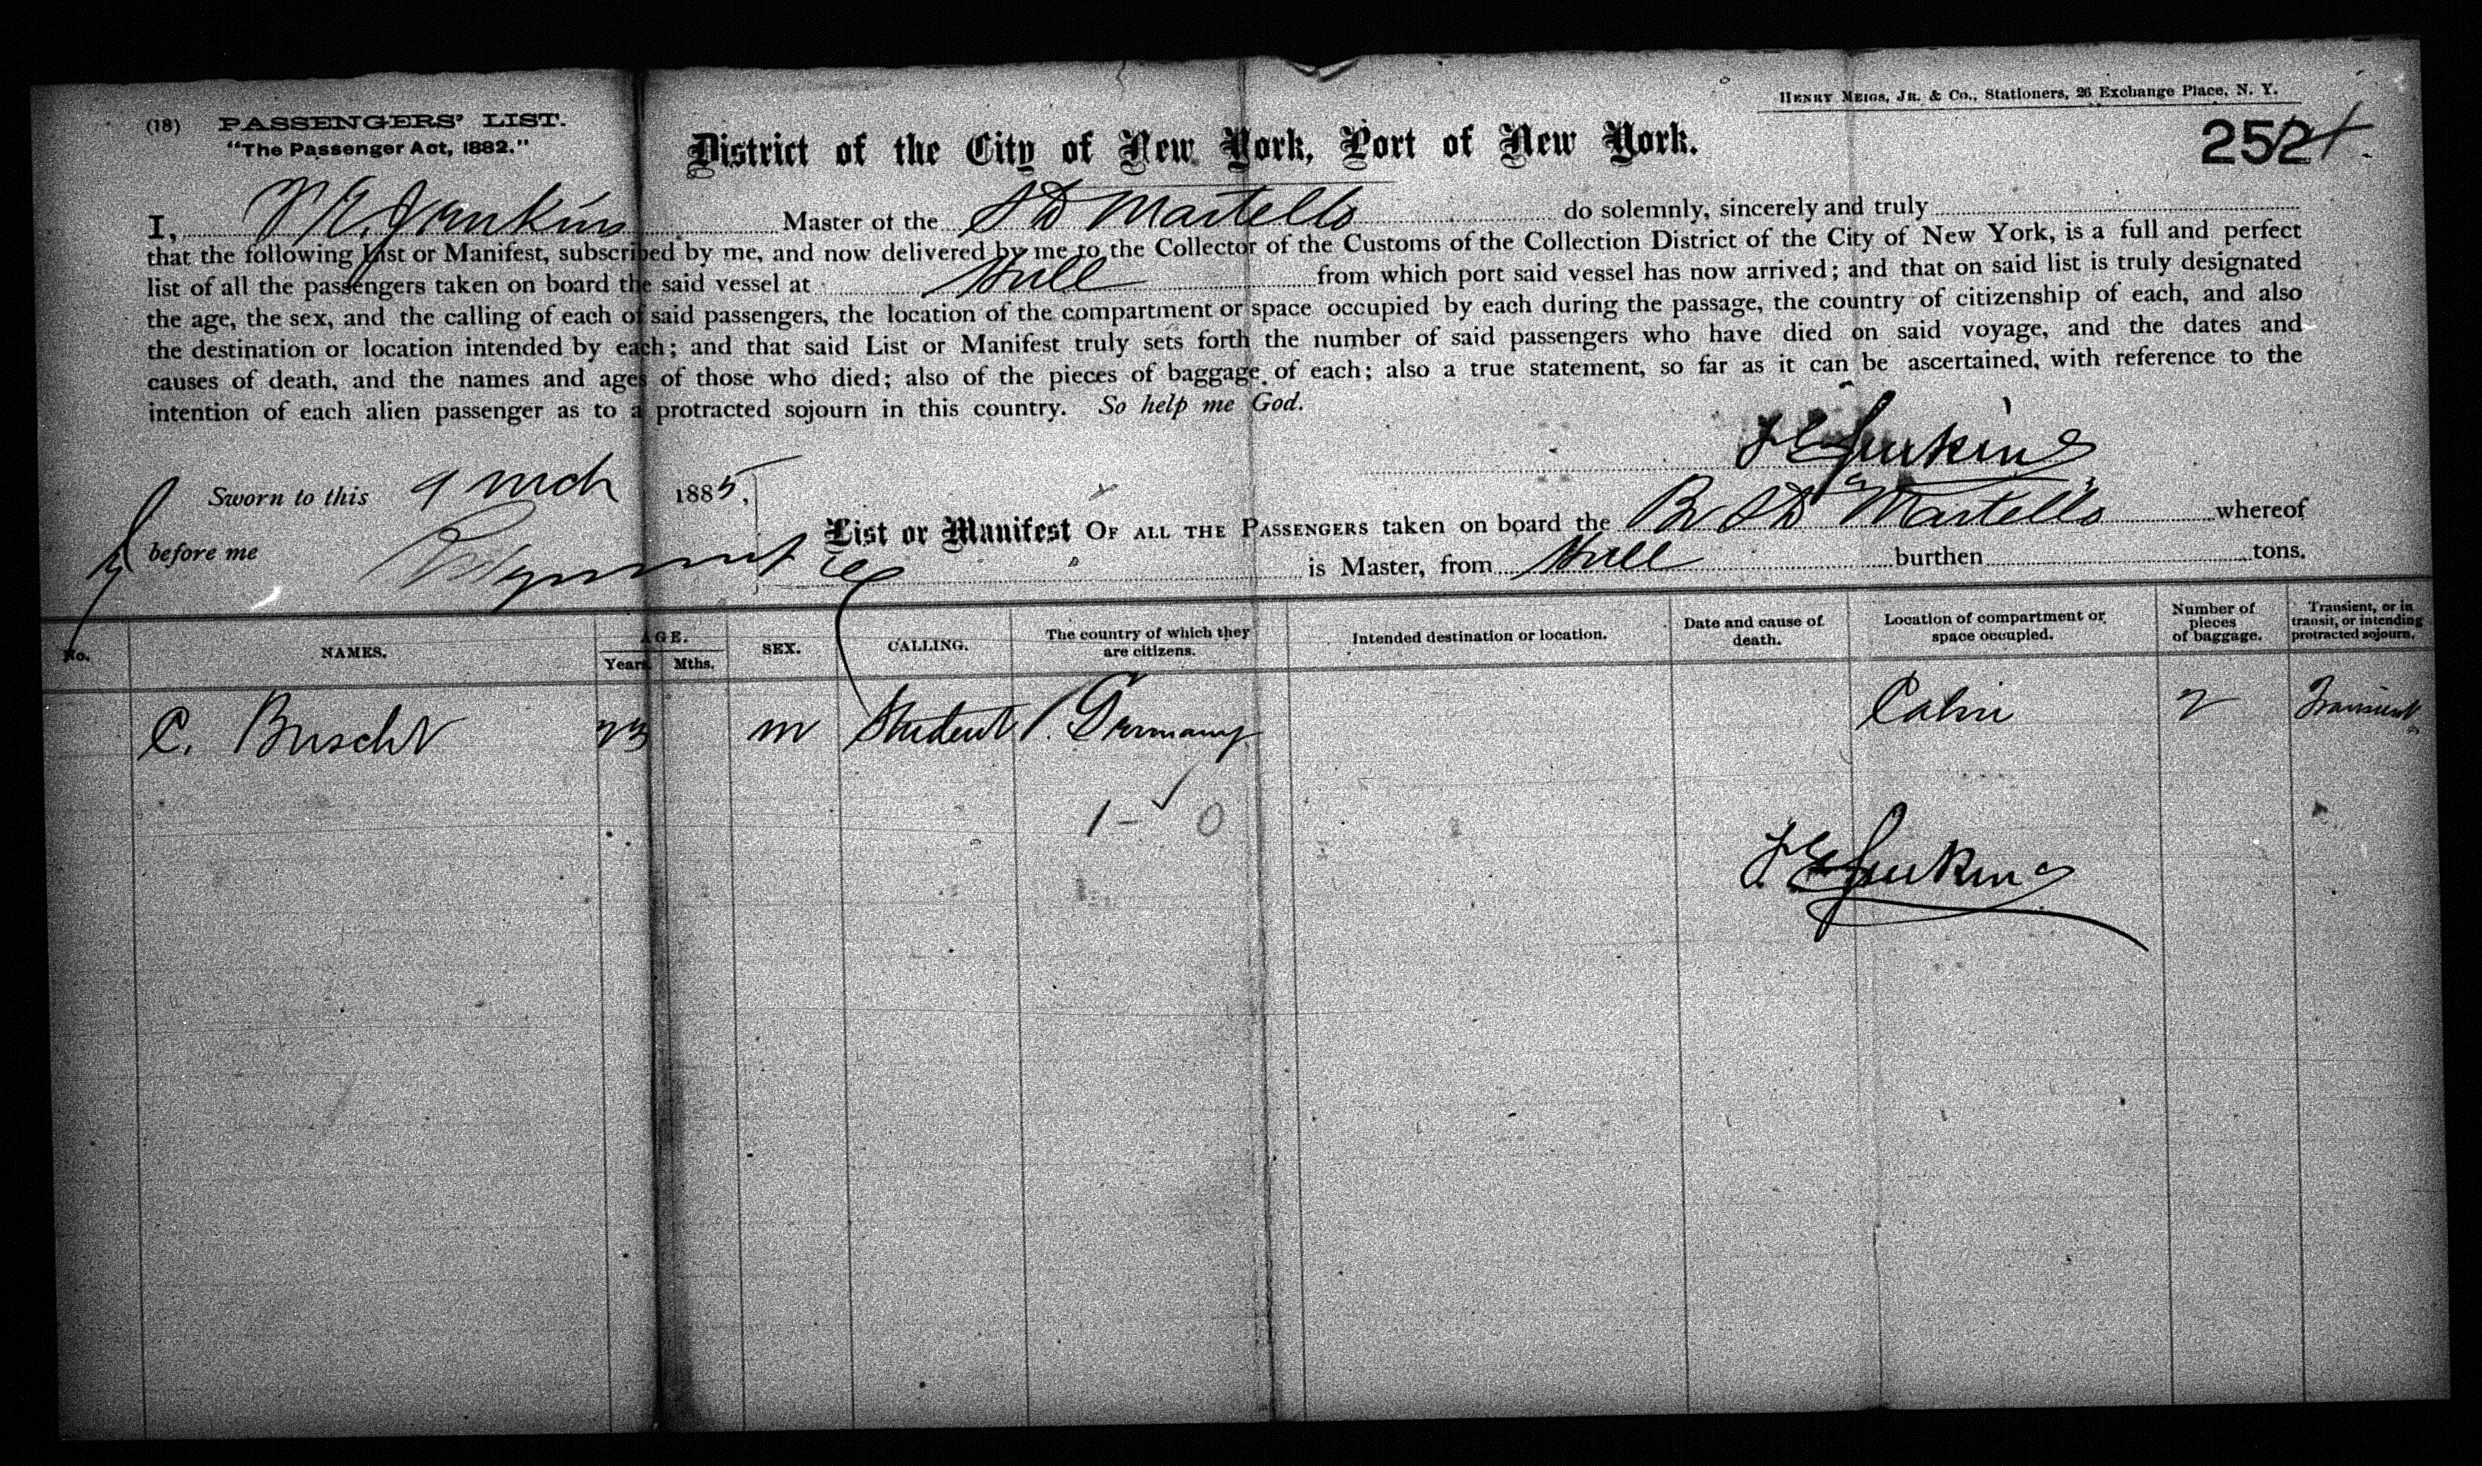 HENRY MEIGS, JR. & CO., Stationers, 26 Exchange Place, N. Y.
(18) PASSENGERS' LIST.
"The Passenger Act, 1882."
District of the City of New York, Port of New York.
252
I, Jenkins Master of the S D Martello do solemnly, sincerely and truly
that the following List or Manifest, subscribed by me, and now delivered by me to the Collector of the Customs of the Collection District of the City of New York, is a full and perfect
list of all the passengers taken on board the said vessel at Hull from which port said vessel has now arrived; and that on said list is truly designated
the age, the sex, and the calling of each of said passengers, the location of the compartment or space occupied by each during the passage, the country of citizenship of each, and also
the destination or location intended by each; and that said List or Manifest truly sets forth the number of said passengers who have died on said voyage, and the dates and
causes of death, and the names and ages of those who died; also of the pieces of baggage of each; also a true statement, so far as it can be ascertained, with reference to the
intention of each alien passenger as to a protracted sojourn in this country. So help me God.
F E Jenkins
Sworn to this 9 Mch 1885,
before me
List or Manifest OF ALL THE PASSENGERS taken on board the Br S D Martello whereof
is Master, from Hull burthen tons.
No. NAMES. AGE. Years Mths. SEX. CALLING. The country of which they are citizens. Intended destination or location. Date and cause of death. Location of compartment or space occupied. Number of pieces of baggage. Transient, or in transit, or intending protracted sojourn.
C. Buscht 23 m Student Germany Cabin 2 Transient
1 - 0
F E Jenkins